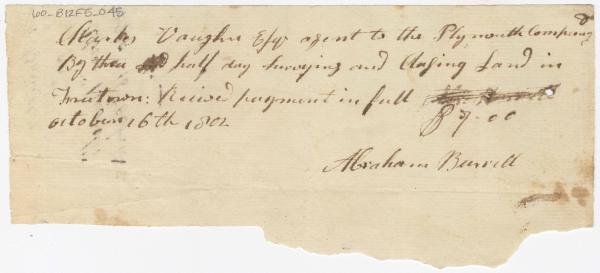 60-B12F5-045
Charles Vaughn Esqr agent to the Plymouth Company Dr
By three and half day Surveying and Chasing Land in
Freetown: Reicved payment in full
$ 7.00
october 16th 1802
Abraham Burrell